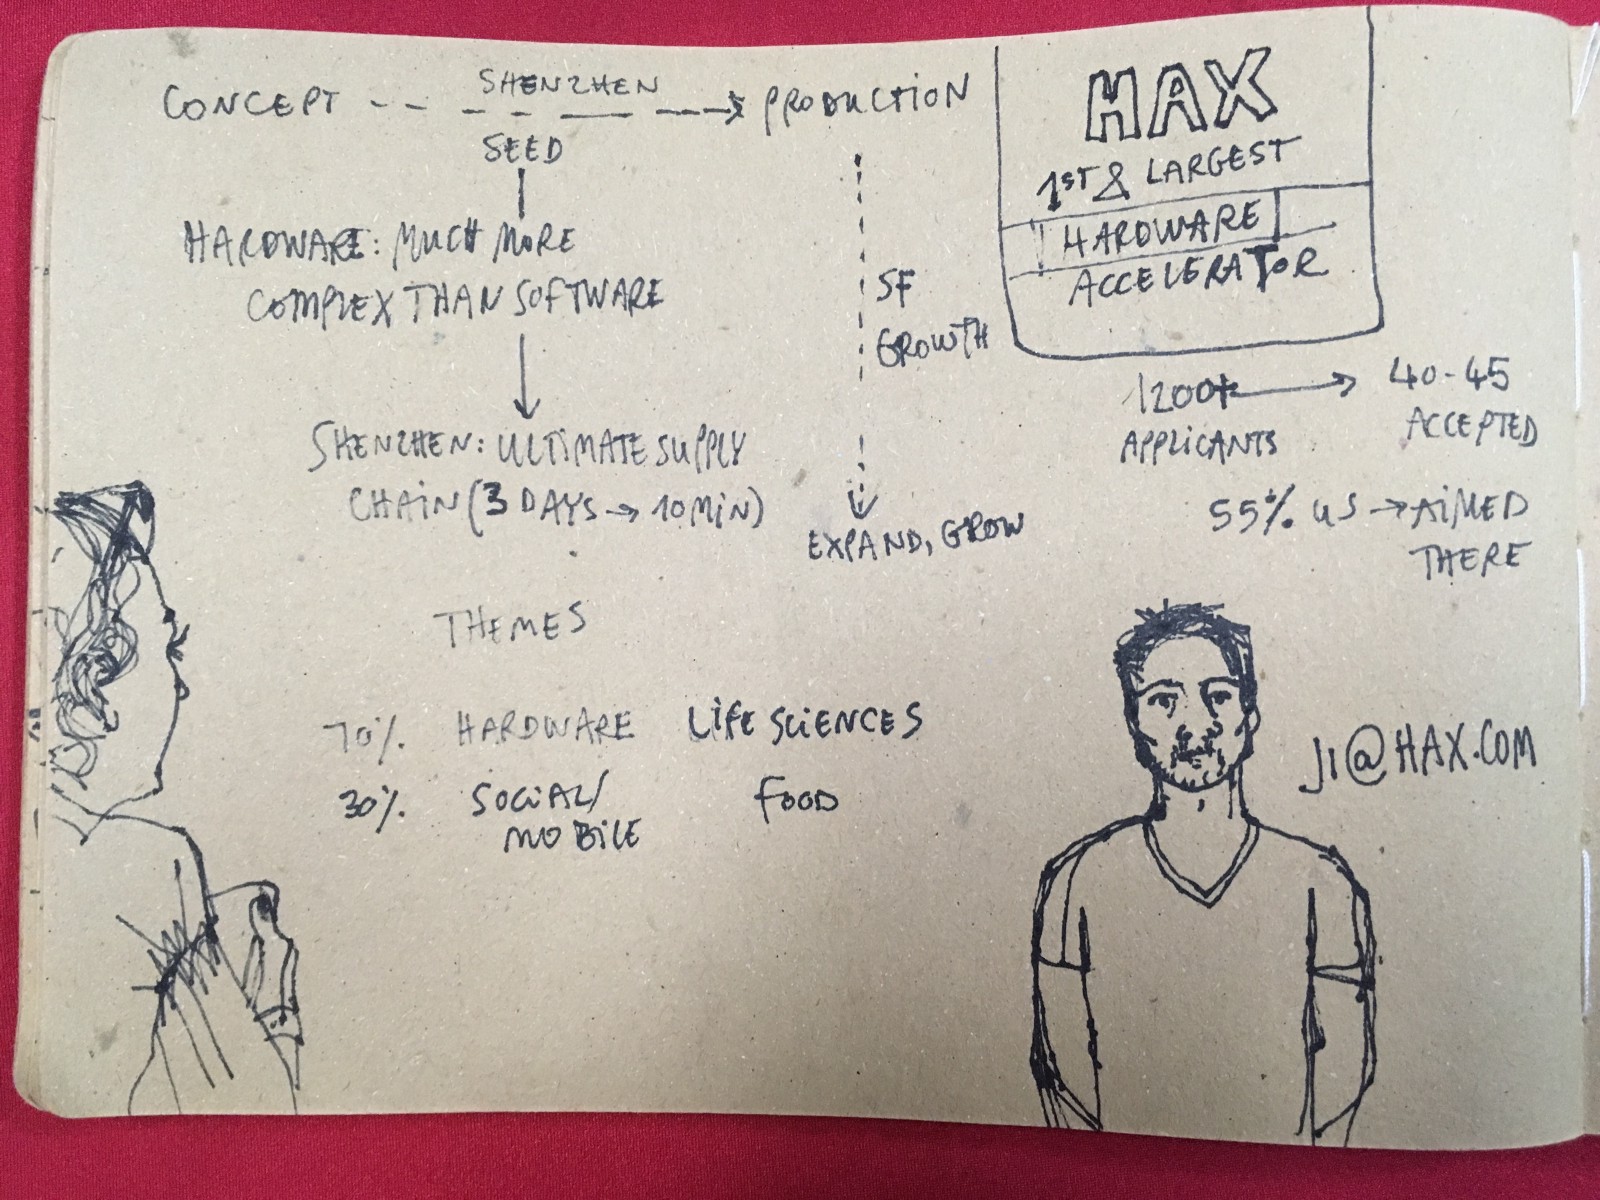 CONCEPT
SHENZHEN
SEED
PRODUCTION
HARDWARE: MUCH MORE
COMPLEX THAN SOFTWARE
SHENZHEN: ULTIMATE SUPPLY
CHAIN (3 DAYS → 10 MIN)
SF
GROWTH
EXPAND, GROW
HAX
1ST & LARGEST
HARDWARE
ACCELERATOR
1200+ → 40-45
APPLICANTS ACCEPTED
55% US → AIMED
THERE
THEMES
70% HARDWARE LIFE SCIENCES
30% SOCIAL/ FOOD
MOBILE
JI@HAX.COM